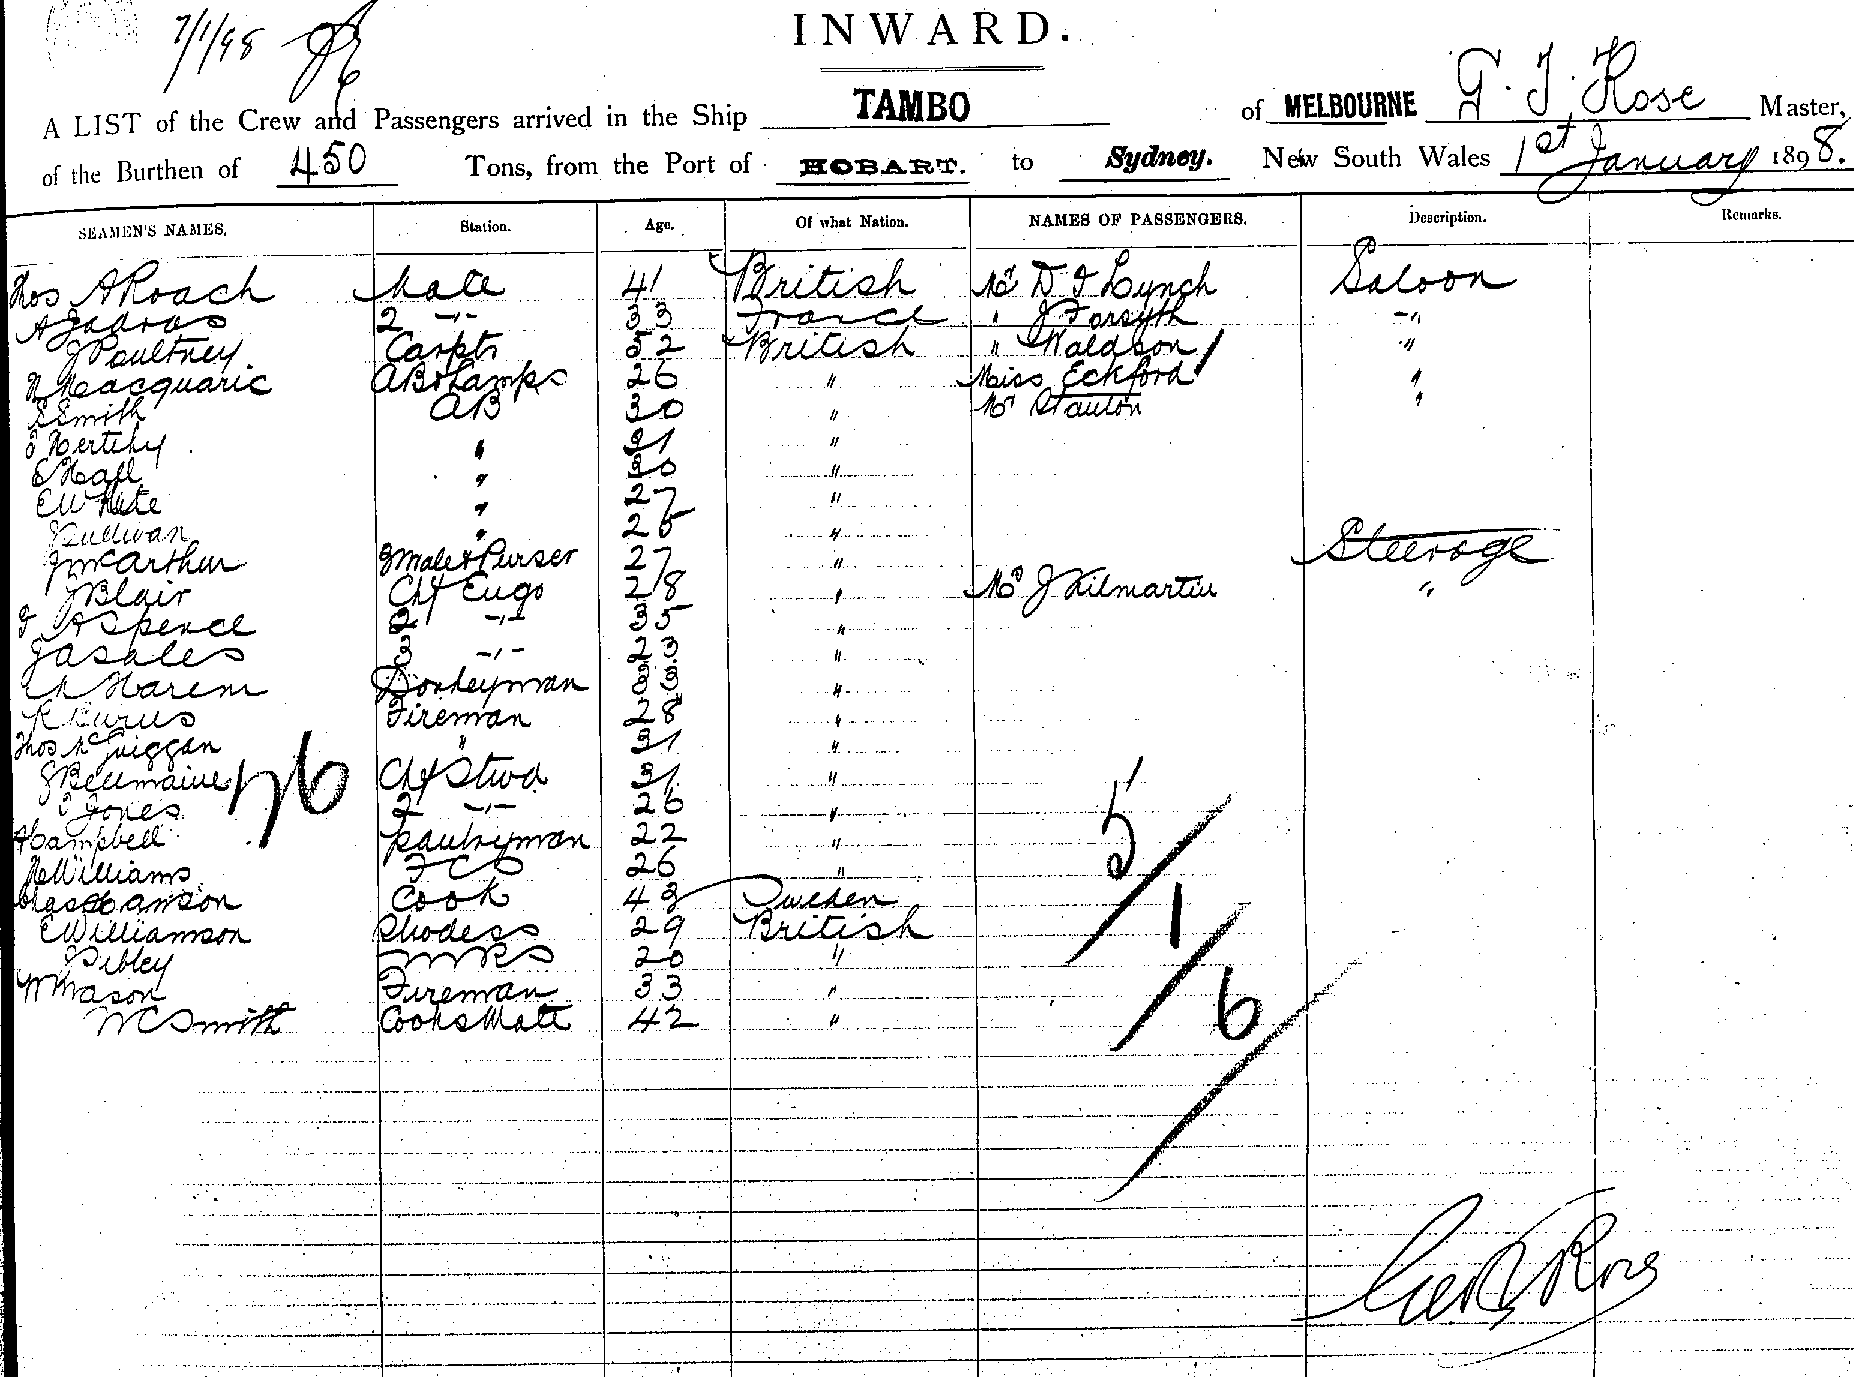 7/1/98
INWARD.
A LIST of the Crew and Passengers arrived in the Ship TAMBO of MELBOURNE G. T. Rose Master,
of the Burthen of 450 Tons, from the Port of HOBART. to Sydney. New South Wales 1st January 1898.
SEAMEN'S NAMES. Station. Age. Of what Nation. NAMES OF PASSENGERS. Description. Remarks.
Thos A Roach Mate 41 British Mr D J Lynch Saloon
2 -"- 33 France " J Forsyth -"-
J Poultney Carptr 52 British " Waldson "
Macquarie AB & Lamps 26 " Miss Eckford "
S Smith AB 30 " Mr Staulon "
Hertehy " 21 "
E Hall " 30 "
E White " 27 "
J Sullivan " 25 "
J McArthur 3 Mate & Purser 27 " Steerage
J Blair Chf Engr 28 " Mr J Kilmartin "
A Spence 2 -"- 35 "
J A Sales 3 -"- 23 "
Donkeyman 33 "
Fireman 28 "
Thos McGuiggan " 31 "
Chf Stwd 31 "
Jones 2 -"- 26 "
A Campbell Pantryman 22 "
Williams F C S 26 "
Chas Hanson Cook 43 Sweden
E Williamson Stwdess 29 British
Sibley M R S 20 "
W Mason Fireman 33 "
W C Smith Cooks Mate 42 "
5
1
6